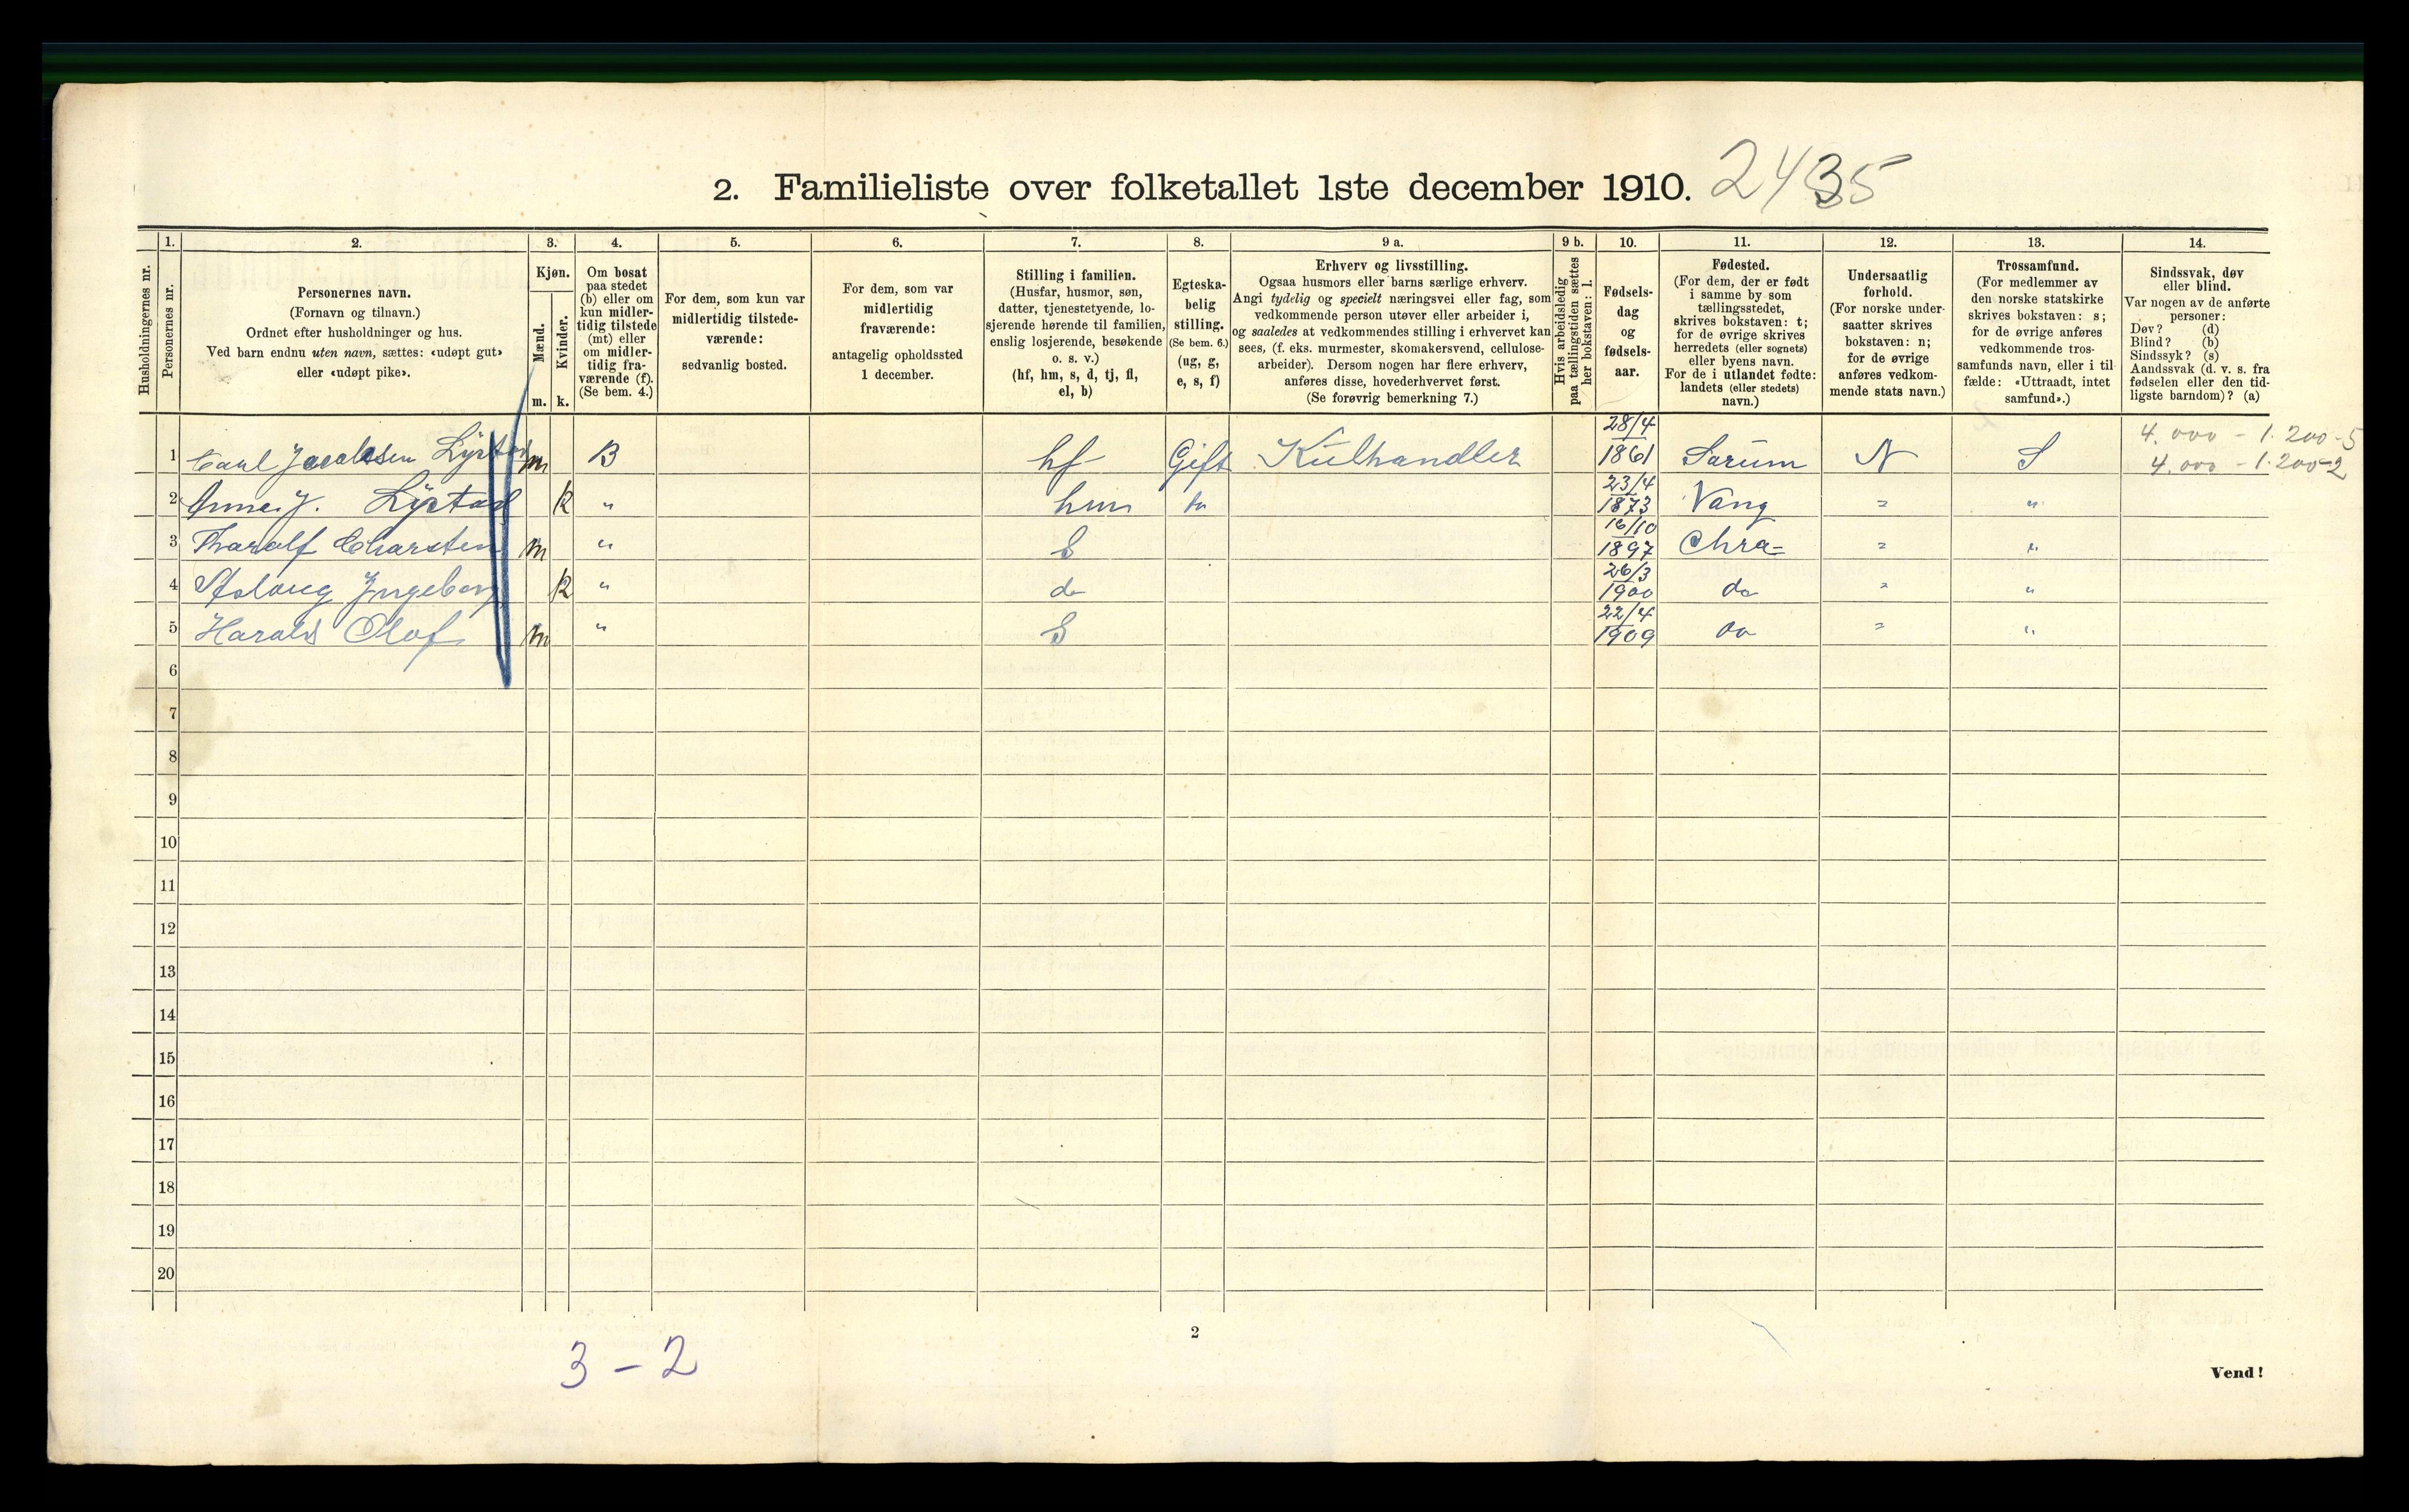 2. Familieliste over folketallet 1ste december 1910. 2435
Husholdningernes nr.
1.
Personernes nr.
2.
Personernes navn.
(Fornavn og tilnavn.)
Ordnet efter husholdninger og hus.
Ved barn endnu uten navn, sættes: «udøpt gut»
eller «udøpt pike».
3.
Kjøn.
Mænd.
Kvinder.
m. k.
4.
Om bosat
paa stedet
(b) eller om
kun midler-
tidig tilstede
(mt) eller
om midler-
tidig fra-
værende (f).
(Se bem. 4.)
5.
For dem, som kun var
midlertidig tilstede-
værende:
sedvanlig bosted.
6.
For dem, som var
midlertidig
fraværende:
antagelig opholdssted
1 december.
7.
Stilling i familien.
(Husfar, husmor, søn,
datter, tjenestetyende, lo-
sjerende hørende til familien,
enslig losjerende, besøkende
o. s. v.)
(hf, hm, s, d, tj, fl,
el, b)
8.
Egteska-
belig
stilling.
(Se bem. 6.)
(ug, g,
e, s, f)
9 a.
Erhverv og livsstilling.
Ogsaa husmors eller barns særlige erhverv.
Angi tydelig og specielt næringsvei eller fag, som
vedkommende person utøver eller arbeider i,
og saaledes at vedkommendes stilling i erhvervet kan
sees, (f. eks. murmester, skomakersvend, cellulose-
arbeider). Dersom nogen har flere erhverv,
anføres disse, hovederhvervet først.
(Se forøvrig bemerkning 7.)
9 b.
Hvis arbeidsledig
paa tællingstiden sættes
her bokstaven: l.
10.
Fødsels-
dag
og
fødsels-
aar.
11.
Fødested.
(For dem, der er født
i samme by som
tællingsstedet,
skrives bokstaven: t;
for de øvrige skrives
herredets (eller sognets)
eller byens navn.
For de i utlandet fødte:
landets (eller stedets)
navn.)
12.
Undersaatlig
forhold.
(For norske under-
saatter skrives
bokstaven: n;
for de øvrige
anføres vedkom-
mende stats navn.)
13.
Trossamfund.
(For medlemmer av
den norske statskirke
skrives bokstaven: s;
for de øvrige anføres
vedkommende tros-
samfunds navn, eller i til-
fælde: «Uttraadt, intet
samfund».)
14.
Sindssvak, døv
eller blind.
Var nogen av de anførte
personer:
Døv? (d)
Blind? (b)
Sindssyk? (s)
Aandssvak (d. v. s. fra
fødselen eller den tid-
ligste barndom)? (a)
1 Carl Jacobsen Lystad m B hf Gift Kulhandler 28/4 1861 Sørum N S 4.000 - 1.200-5
4.000 - 1.200-2
2 Anne J. Lystad k " hm 23/4 1873 Vang " "
3 Tharalf Charsten m " S 16/10 1897 Chra= " "
4 Aslaug Ingeborg k " d 26/3 1900 do " "
5 Harald Olaf m " S 22/4 1909 do " "
6
7
8
9
10
11
12
13
14
15
16
17
18
19
20
2
3 - 2
Vend!